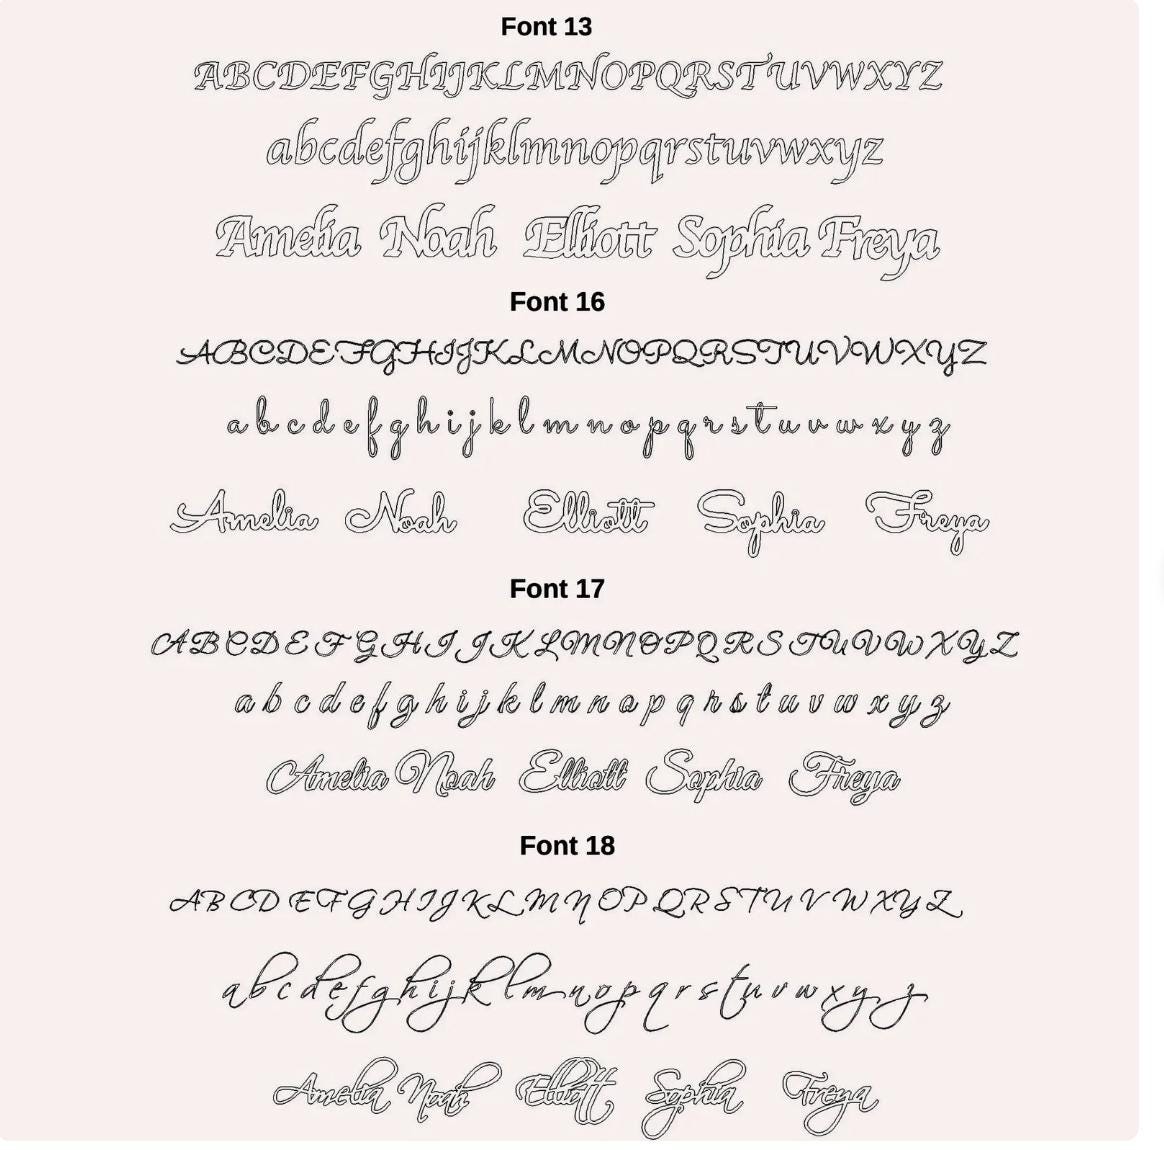 Font 13
ABCDEFGHIJKLMNOPQRSTUVWXYZ
abcdefghijklmnopqrstuvwxyz
Amelia Noah Elliott Sophia Freya
Font 16
ABCDEFGHIJKLMNOPQRSTUVWXYZ
a b c d e f g h i j k l m n o p q r s t u v w x y z
Amelia Noah Elliott Sophia Freya
Font 17
A B C D E F G H I J K L M N O P Q R S T U V W X Y Z
a b c d e f g h i j k l m n o p q r s t u v w x y z
Amelia Noah Elliott Sophia Freya
Font 18
A B C D E F G H I J K L M N O P Q R S T U V W X Y Z
a b c d e f g h i j k l m n o p q r s t u v w x y z
Amelia Noah Elliott Sophia Freya